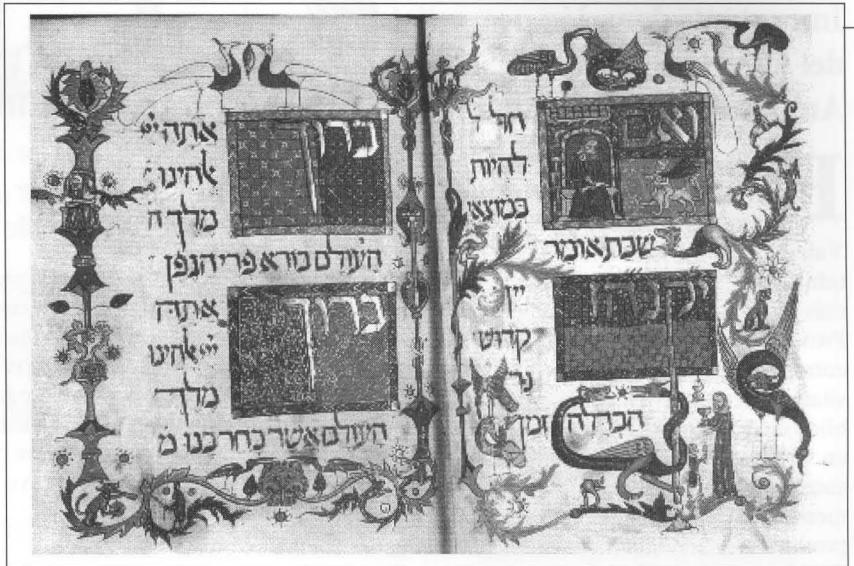 ואם
חל ל
להיות
במוצאי
שבת אומר
יקנהז
יין
קדוש
נר
הבדלה זמן
ברוך
אתה יי
אלהינו
מלך ה
העולם בורא פרי הגפן
ברוך
אתה
יי אלהינו
מלך
העולם אשר בחר בנו מ